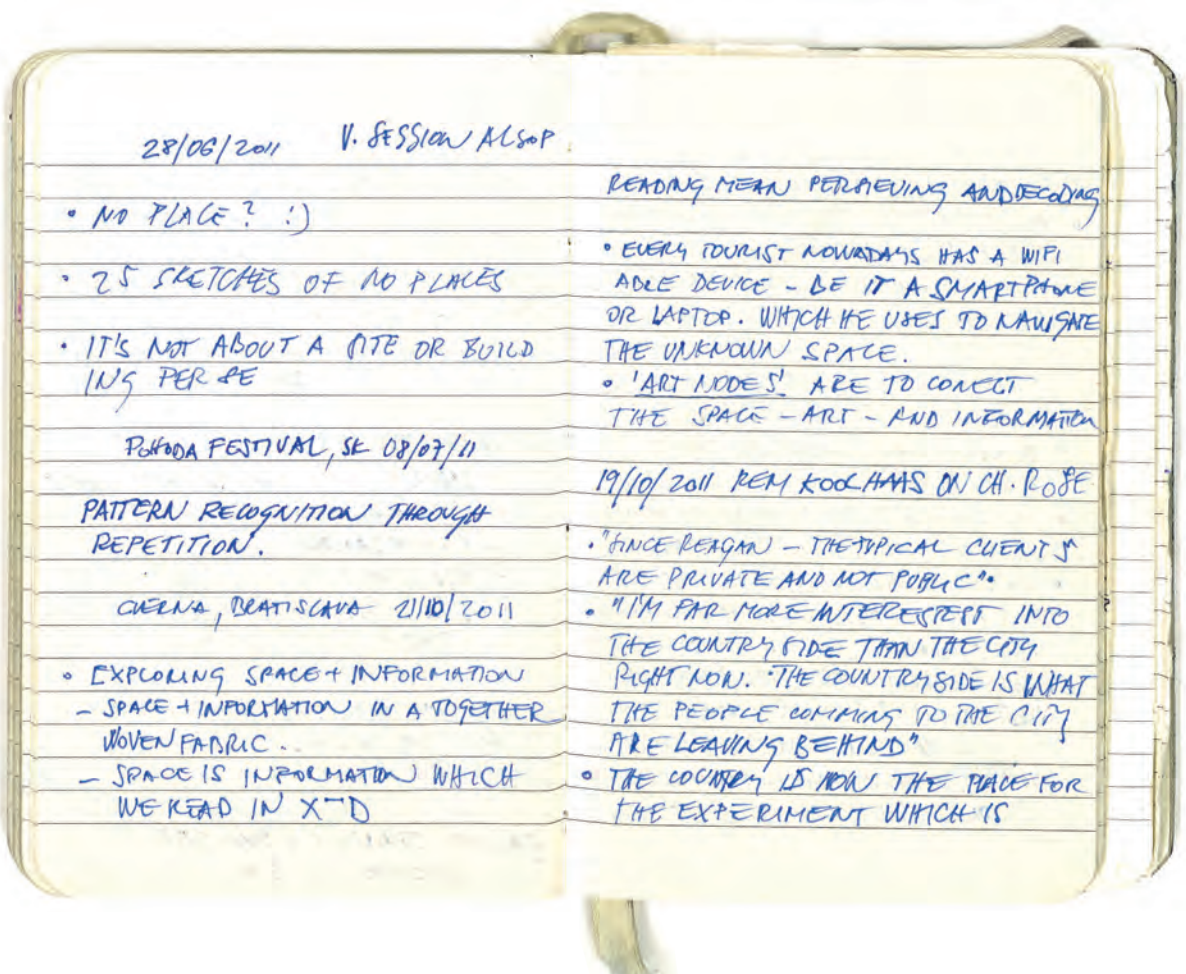 28/06/2011 V. SESSION ALSOP
• NO PLACE? :)
• 25 SKETCHES OF NO PLACES
• IT'S NOT ABOUT A SITE OR BUILD
ING PER SE
POHODA FESTIVAL, SK 08/07/11
PATTERN RECOGNITION THROUGH
REPETITION.
BRATISLAVA 21/10/2011
• EXPLORING SPACE + INFORMATION
– SPACE + INFORMATION IN A TOGETHER
WOVEN FABRIC..
– SPACE IS INFORMATION WHICH
WE READ IN X-D
READING MEAN PERCIEVING AND DECODING
• EVERY TOURIST NOWADAYS HAS A WIFI
ABLE DEVICE – BE IT A SMARTPHONE
OR LAPTOP. WHICH HE USES TO NAVIGATE
THE UNKNOWN SPACE.
• 'ART NODES' ARE TO CONECT
THE SPACE – ART – AND INFORMATION
19/10/2011 REM KOOLHAAS ON CH. ROSE
• "SINCE REAGAN – THE TYPICAL CLIENTS
ARE PRIVATE AND NOT PUBLIC".
• "I'M FAR MORE INTO
THE COUNTRY SIDE THAN THE CITY
RIGHT NOW. THE COUNTRY SIDE IS WHAT
THE PEOPLE COMMING TO THE CITY
ARE LEAVING BEHIND"
• THE COUNTRY IS NOW THE PLACE FOR
THE EXPERIMENT WHICH IS